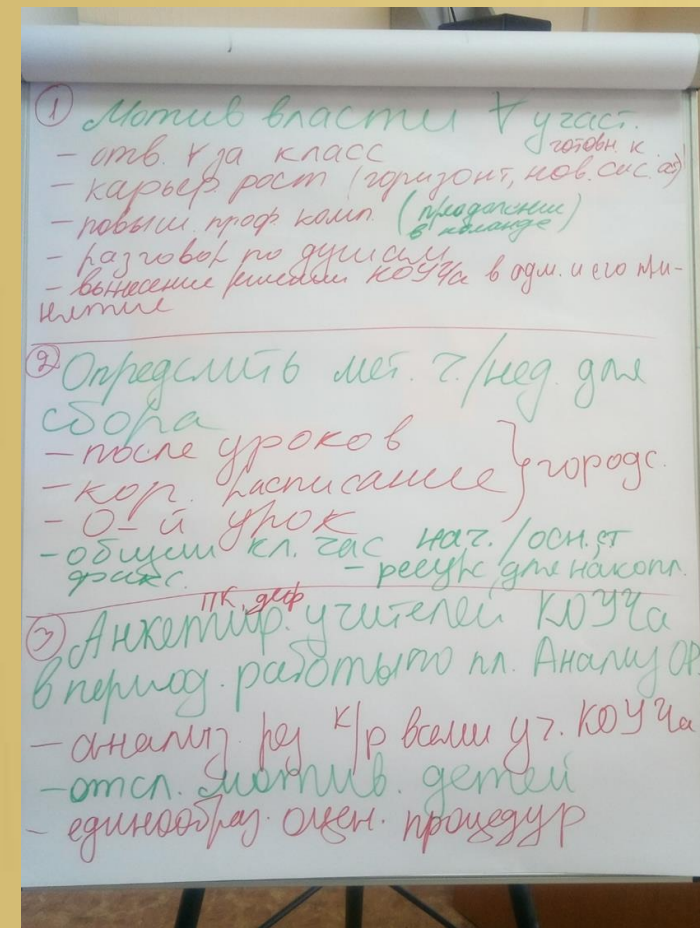 ① Мотив власти ∀ участ.
- отв. ∀ за класс
готовн. к
- карьер. рост (горизонт, нов. сис.
- повыш. проф. комп. (продвижение
в команде)
- разговор по душам
- вынесение решений КОУЧа в адм. и его при-
нятие
② Определить мет. ч./нед. для
сбора
- после уроков
- кор. расписание } городс.
- 0-й урок
- общий кл. час нач./осн. ст
фикс. - ресурс для накопл.
ПК, деф
③ Анкетир. учителей КОУЧа
в период. работы по пл. Анализ ОР
- анализ рез к/р всеми уч. КОУЧа
- отсл. мотив. детей
- единообраз. оцен. процедур